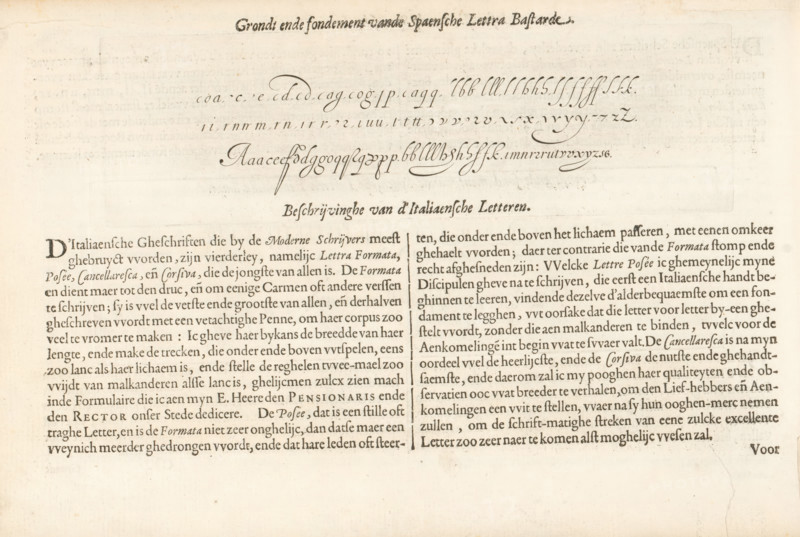 Grondt ende fondement vande Spaensche Lettra Bastarde.
Beschrijvinghe van d'Italiaensche Letteren.
D'Italiaensche Gheschriften die by de Moderne Schrijvers meest
ghebruyct vvorden, zijn vierderley, namelijc Lettra Formata,
Posée, Cancellaresca, eñ Corsiva, die de jongste van allen is. De Formata
en dient maer tot den druc, eñ om eenige Carmen oft andere verssen
te schrijven; sy is vvel de vetste ende grootste van allen, eñ derhalven
gheschreven vvordt met een vetachtighe Penne, om haer corpus zoo
veel te vromer te maken: Ic gheve haer bykans de breedde van haer
lengte, ende make de trecken, die onder ende boven vvtspelen, eens
zoo lanc als haer lichaem is, ende stelle de reghelen tvvee-mael zoo
vvijdt van malkanderen alsse lanc is, ghelijcmen zulcx zien mach
inde Formulaire die ic aen myn E. Heere den PENSIONARIS ende
den RECTOR onser Stede dedicere. De Posée, dat is een stille oft
traghe Letter, en is de Formata niet zeer onghelijc, dan datse maer een
vveynich meerder ghedrongen vvordt, ende dat hare leden oft steer-
ten, die onder ende boven het lichaem passeren, met eenen omkeer
ghehaelt vvorden; daer ter contrarie die vande Formata stomp ende
recht afghesneden zijn: VVelcke Lettre Posée ic ghemeynelijc myne
Discipulen gheve na te schrijven, die eerst een Italiaensche handt be-
ghinnen te leeren, vindende dezelve d'alderbequaemste om een fon-
dament te legghen, vvt oorsake dat die letter voor letter by-een ghe-
stelt vvordt, zonder die aen malkanderen te binden, tvvelc voor de
Aenkomelingē int begin vvat te svvaer valt. De Cancellaresca is na myn
oordeel vvel de heerlijcste, ende de Corsiva de nutste ende ghehandt-
saemste, ende daerom zal ic my pooghen haer qualiteyten ende ob-
servatien ooc vvat breeder te verhalen, om den Lief-hebbers eñ Aen-
komelingen een vvit te stellen, vvaer na sy hun ooghen-merc nemen
zullen, om de schrift-matighe streken van eene zulcke excellente
Letter zoo zeer naer te komen alst moghelijc vvesen zal.
Voor